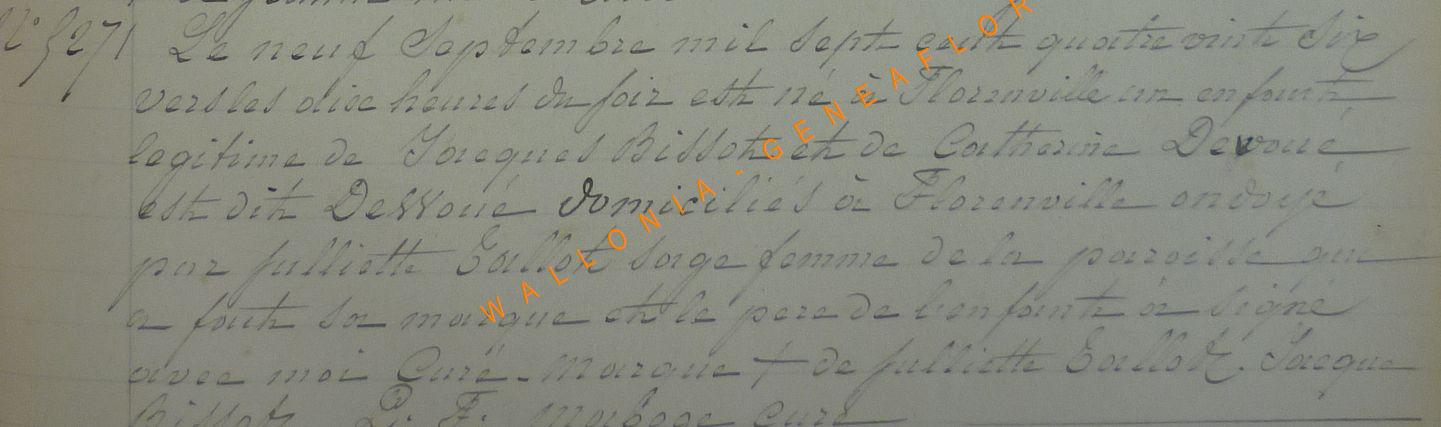 N° 3271 Le neuf Septembre mil sept cent quatre vint Six
vers les dixe heures du soir est né à Florenville un enfant
legitime de Jacques Bissot et de Catherine Devoué
est dit Devoué domiciliés à Florenville ondoyé
par Julliette Tallot sage femme de la paroisse qui
a fait sa marque et le pere de l'enfant à signé
avec moi Curé - Marque + de Julliette Tallot. Jacque
Bissot P. F. curé
WALLONIA - GENEAFLOR